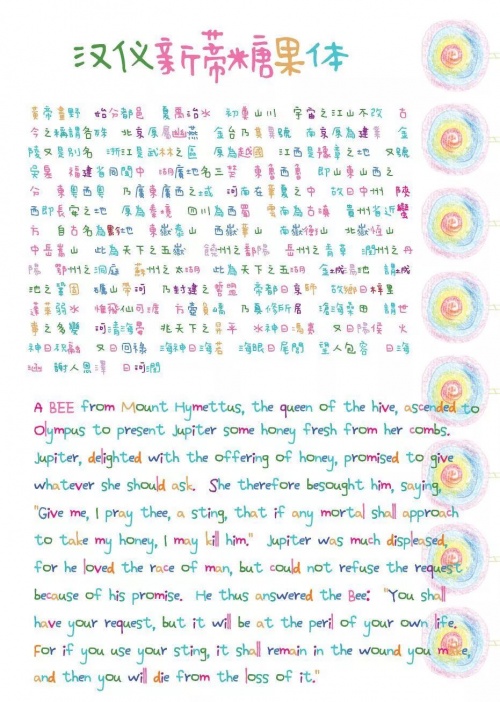 汉仪新蒂糖果体
黄帝畫野 始分都邑 夏禹治水 初奠山川 宇宙之江山不改 古
今之稱謂各殊 北京原屬幽燕 金台乃其異號 南京原為建業 金
陵又是別名 浙江是武林之區 原為越國 江西是豫章之地 又號
吳皋 福建省閩中 湖廣地名三楚 東魯西魯 即山東山西之
分 東粵西粵 乃廣東廣西之域 河南在華夏之中 故曰中州 陝
西即長安之地 原為秦境 四川為西蜀 雲南為古滇 貴州省近蠻
方 自古名為黔地 東嶽泰山 西嶽華山 南嶽衡山 北嶽恆山
中岳嵩山 此為天下之五嶽 饒州之鄱陽 岳州之青草 潤州之丹
陽 鄂州之洞庭 蘇州之太湖 此為天下之五湖 金城湯池 謂城
池之鞏固 礪山帶河 乃封建之誓盟 帝都曰京師 故鄉曰梓里
蓬萊弱水 惟飛仙可渡 方壺員嶠 乃仙子所居 滄海桑田 謂世
事之多變 河清海晏 兆天下之昇平 水神曰馮夷 又曰陽侯 火
神曰祝融 又曰回祿 海神曰海若 海眼曰尾閭 望人包容 曰海
涵 謝人恩澤 曰河潤
A BEE from Mount Hymettus, the queen of the hive, ascended to
Olympus to present Jupiter some honey fresh from her combs.
Jupiter, delighted with the offering of honey, promised to give
whatever she should ask. She therefore besought him, saying,
"Give me, I pray thee, a sting, that if any mortal shall approach
to take my honey, I may kill him." Jupiter was much displeased,
for he loved the race of man, but could not refuse the request
because of his promise. He thus answered the Bee: "You shall
have your request, but it will be at the peril of your own life.
For if you use your sting, it shall remain in the wound you make,
and then you will die from the loss of it."